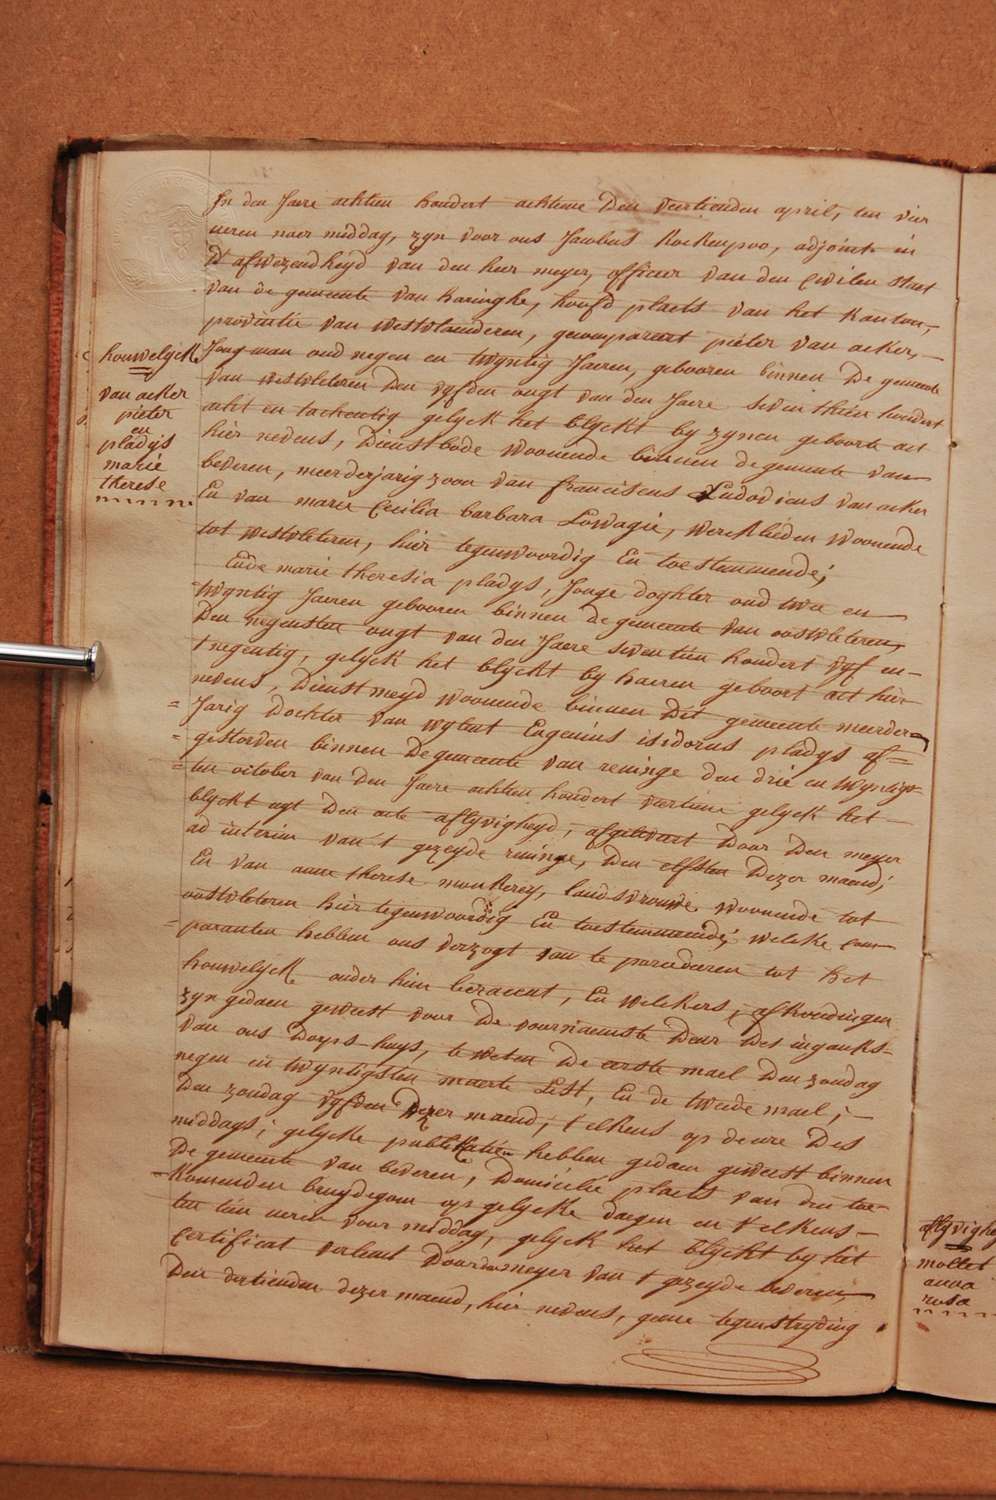 houwelyck
van acker
pieter
en
pladys
marie
therese
In den Jaere achtien hondert achtiene Den veertienden april, ten vier
ueren naer middag, zyn voor ons Jacobus Kockenpoo, adjoint in
d'afwezendheyd van den heer meyer, officier van den civilen staet
van de gemeente van haringhe, hoofd plaets van het Kanton,
provintie van westvlaenderen, gecompareert pieter van acker,
Jong man oud negen en twyntig Jaeren, gebooren binnen De gemeente
van westvleteren Den vyfden ougt van den Jaere seventhien hondert
acht en tachentig gelyck het blyckt by zynen geboorte act
hier nevens, Dienstbode woonende binnen de gemeente van
beveren, meerderjarig zoon van franciscus Ludovicus van acker
En van marie Cecilia barbara Lowagie, wercklieden woonende
tot westvleteren, hier tegenwoordig En toestemmende;
Ende marie theresia pladys, Jonge doghter oud twee en
twyntig Jaeren gebooren binnen de gemeente van oostvleteren,
Den negensten ougt van den Jaere seventien hondert vyf en
tnegentig, gelyck het blyckt by haeren geboort act hier
nevens, Dienstmeyd woonende binnen Dit gemeente meerder=
=Jarig Dochter van wybert Eugenius isidorus pladys af=
=gestorven binnen De gemeente van reninge den drie en twyntigs=
=ten october van den Jaere achtien hondert veertiene gelyck het
blyckt uyt Den acte aflyvigheyd, afgelevert Door Den meyer
ad interim van 't gezeyde reninge, Den elfsten Dezer maend;
En van anne therese monkerey, landsvrouwe woonende tot
oostvleteren hier tegenwoordig En toestemmende; welcke com=
=paranten hebben ons verzogt van te procederen tot het
houwelyck onder hun beraemt, En welckers, afkondingen
zyn gedaen geweest voor De voornaemste Deur Des ingancks
van ons Dorps-huys, te weten De eerste mael Den zondag
negen en twyntigsten maerte Lest, En de tweede mael;
Den zondag vyfden Dezer maend, telkens op de ure Des
middags; gelycke publikatien hebben gedaen geweest binnen
De gemeente van beveren, Domicilie plaets van den toe=
=komenden bruydegom op gelycke daegen en telkens
ten tien ueren voor middag, gelyck het blyckt by het
Certificat verleent Door den meyer van 't gezeyde beveren,
Den dertienden dezer maend, hier nevens, geene tegenstryding
aflyvighey
mollet
anna
rosa